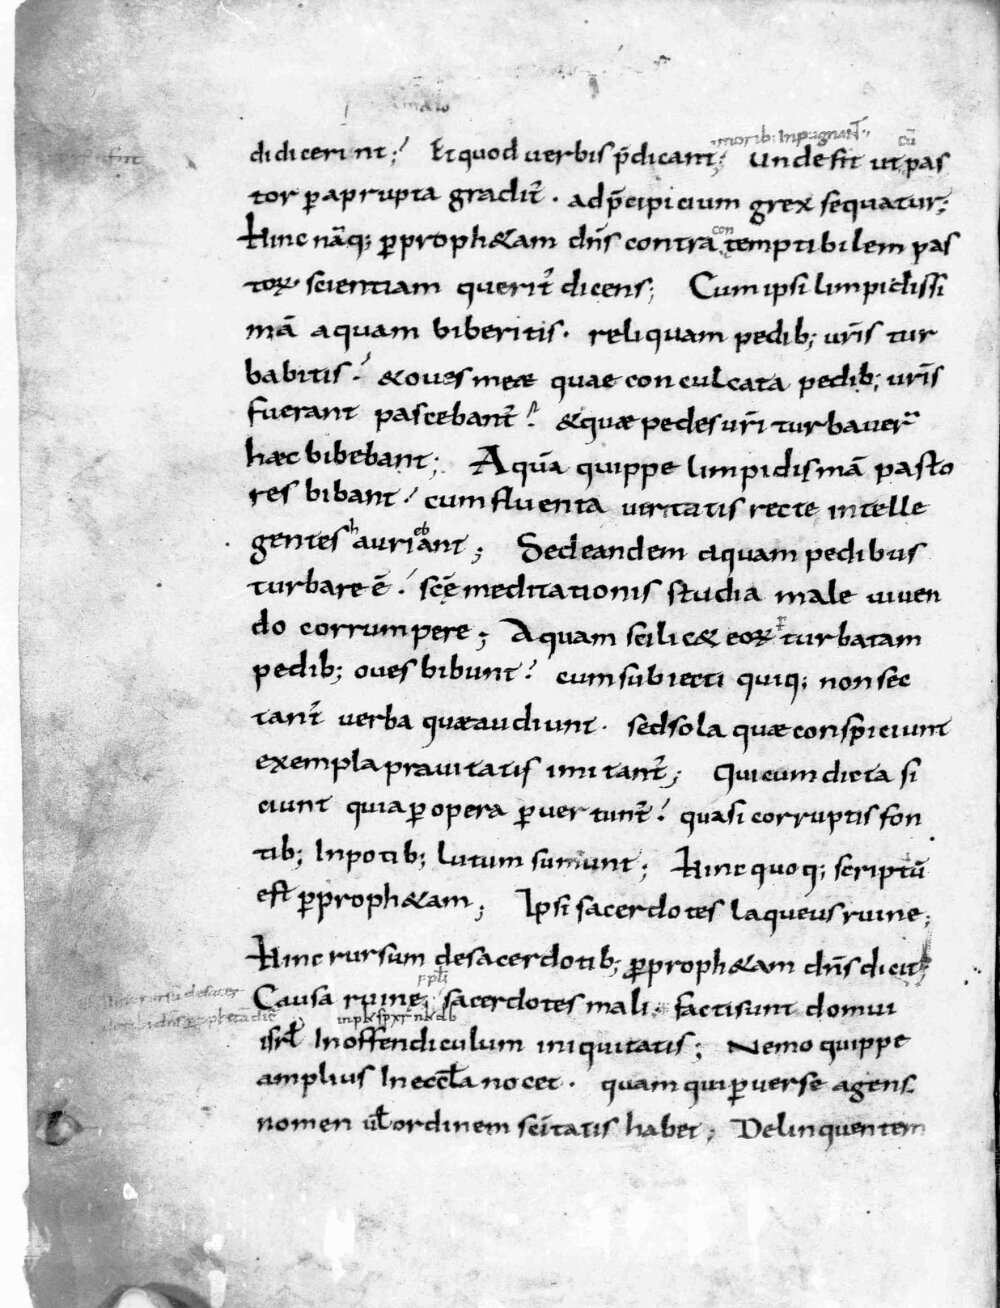 morib; Inpugnant;
cū
didicerint; Et quod verbis p̄dicant; Unde fit ut pas
tor ꝑaprupta gradit᷑. ad p̄cipicium grex sequatur;
Hinc nāq; ꝑproph&am dn̄s contra temptibilem pas
con
toꝝ scientiam querit᷑ dicens; Cum ipsi limpidissi
mā aquam biberitis. reliquam pedib; vr̄is tur
babitis? & oves meae quae conculcata pedib; vr̄is
fuerant pascebant᷑? & quæ pedes vr̄i turbaver̄
hæc bibebant; Aquā quippe limpidis mā pasto
res bibant? cum fluenta veritatis recte intelle
h eb
gentes auriant; Sed eandem aquam pedibus
turbare ē. sc̄ę meditationis studia male viven
do corrumpere; Aquam scilic& eoꝝ turbatam
pedib; oves bibunt? cum subiecti quiq; non sec
tant᷑ verba quæ audiunt. sed sola quæ conspiciunt
exempla pravitatis imitant᷑; Qui cum dicta si
ciunt quia ꝑ opera ꝑvertunt᷑? quasi corruptis fon
tib; In potib; lutum sumunt; Hinc quoq; scriptū
est ꝑproph&am; Ipsi sacerdotes laqueus ruine;
Hinc rursum de sacerdotib; ꝑproph&am dn̄s dicit;
Hinc rursū de sacer
Causa ruine, sacerdotes mali. facti sunt domui
isrl̄ In offendiculum iniquitatis; Nemo quippe
amplius In eccl̄a nocet. quam qui ꝑverse agens
nomen vl̄ ordinem sc̄itatis habet; Delinquentem